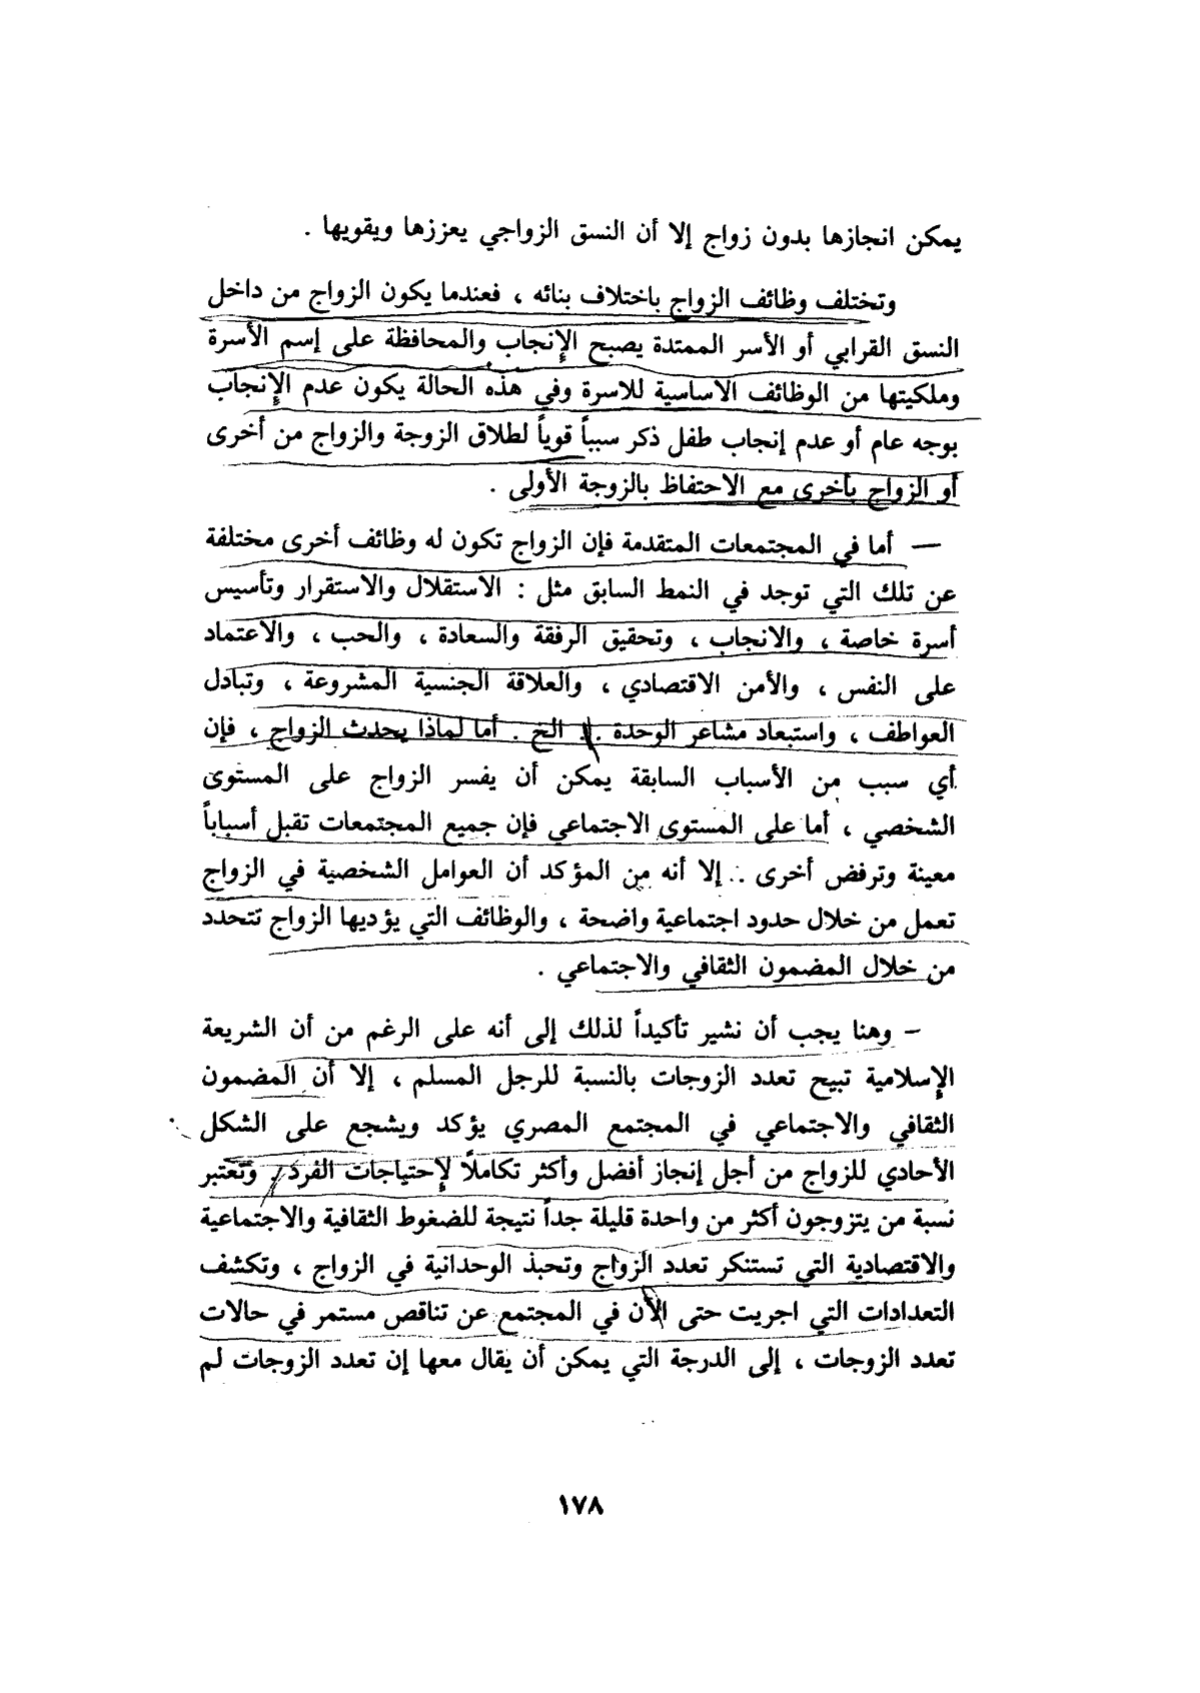 يمكن انجازها بدون زواج إلا أن النسق الزواجي يعززها ويقويها .
وتختلف وظائف الزواج باختلاف بنائه ، فعندما يكون الزواج من داخل
النسق القرابي أو الأسر الممتدة يصبح الإنجاب والمحافظة على إسم الأسرة
وملكيتها من الوظائف الاساسية للاسرة وفي هذه الحالة يكون عدم الإنجاب
بوجه عام أو عدم إنجاب طفل ذكر سبباً قوياً لطلاق الزوجة والزواج من أخرى
أو الزواج بأخرى مع الاحتفاظ بالزوجة الأولى .
— أما في المجتمعات المتقدمة فإن الزواج تكون له وظائف أخرى مختلفة
عن تلك التي توجد في النمط السابق مثل : الاستقلال والاستقرار وتأسيس
أسرة خاصة ، والانجاب ، وتحقيق الرفقة والسعادة ، والحب ، والاعتماد
على النفس ، والأمن الاقتصادي ، والعلاقة الجنسية المشروعة ، وتبادل
العواطف ، واستبعاد مشاعر الوحدة .. الخ . أما لماذا يحدث الزواج ، فإن
أي سبب من الأسباب السابقة يمكن أن يفسر الزواج على المستوى
الشخصي ، أما على المستوى الاجتماعي فإن جميع المجتمعات تقبل أسباباً
معينة وترفض أخرى .. إلا أنه من المؤكد أن العوامل الشخصية في الزواج
تعمل من خلال حدود اجتماعية واضحة ، والوظائف التي يؤديها الزواج تتحدد
من خلال المضمون الثقافي والاجتماعي .
– وهنا يجب أن نشير تأكيداً لذلك إلى أنه على الرغم من أن الشريعة
الإسلامية تبيح تعدد الزوجات بالنسبة للرجل المسلم ، إلا أن المضمون
الثقافي والاجتماعي في المجتمع المصري يؤكد ويشجع على الشكل
الأحادي للزواج من أجل إنجاز أفضل وأكثر تكاملاً لإحتياجات الفرد . وتعتبر
نسبة من يتزوجون أكثر من واحدة قليلة جداً نتيجة للضغوط الثقافية والاجتماعية
والاقتصادية التي تستنكر تعدد الزواج وتحبذ الوحدانية في الزواج ، وتكشف
التعدادات التي اجريت حتى الآن في المجتمع عن تناقص مستمر في حالات
تعدد الزوجات ، إلى الدرجة التي يمكن أن يقال معها إن تعدد الزوجات لم
١٧٨